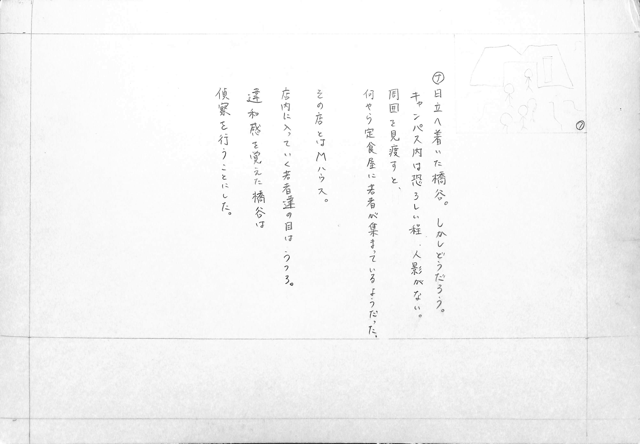 ⑦日立へ着いた橋谷。しかしどうだろう。
キャンパス内は恐ろしい程、人影がない。
周囲を見渡すと、
何やら定食屋に若者が集まっているようだった。
その店とはMハウス。
店内に入っていく若者達の目は、うつろ。
違和感を覚えた橋谷は
偵察を行うことにした。
⑦